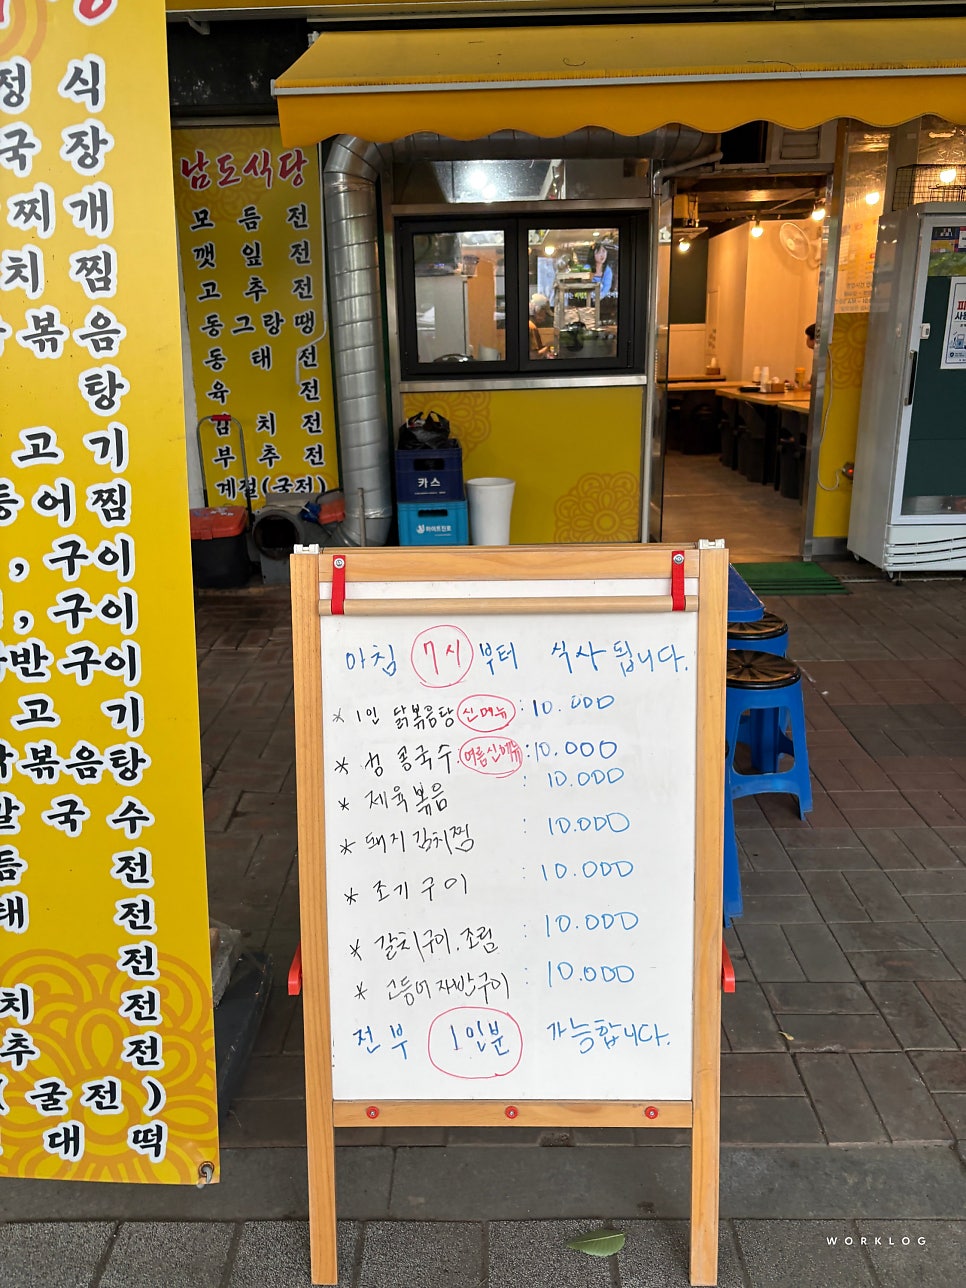 정식
국장
찌개
치찜
볶음
탕
고기
등어찜
, 구이
, 구이
반구이
고기
볶음탕
칼국수
듬전
태전
전
치전
추전
(굴전)
대떡
남도식당
모듬전
깻잎전
고추전
동그랑땡
동태전
육전
김치전
부추전
계절(굴전)
카스
하이트진로
아침 7시부터 식사 됩니다.
* 1인 닭볶음탕 신메뉴 : 10.000
* 성 콩국수. 여름신메뉴 : 10.000
* 제육볶음 : 10.000
* 돼지김치찜 : 10.000
* 조기구이 : 10.000
* 갈치구이.조림 : 10.000
* 고등어자반구이 : 10.000
전부 1인분 가능합니다.
WORKLOG